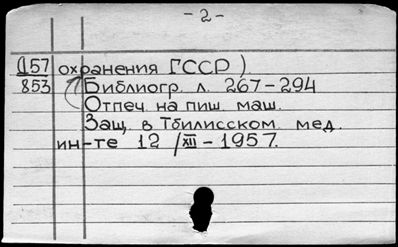 - 2 -
157 охранения ГССР)
853 Библиогр. л. 267-294
Отпеч. на пиш. маш.
Защ. в Тбилисском мед.
ин-те 12/XII-1957.